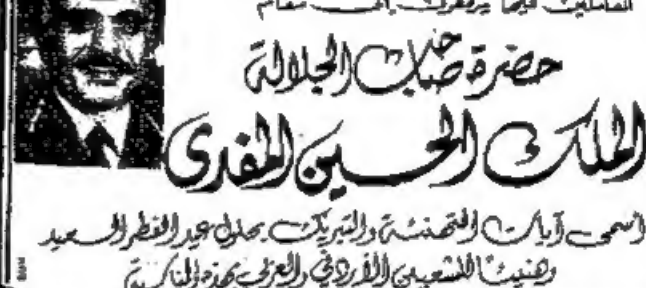 العاملين فيها يرفعون إلى مقام
حضرة صاحب الجلالة
الملك الحسين المفدى
أسمى آيات التهنئة والتبريك بحلول عيد الفطر السعيد
وهنيئاً للشعبين الأردني والعربي بهذه المناسبة